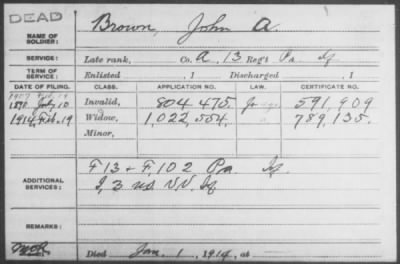 DEAD
NAME OF SOLDIER: Brown, John A.
SERVICE: Late rank, Co. A, 13 Reg't Pa. If
TERM OF SERVICE: Enlisted , 1 Discharged , 1
DATE OF FILING. CLASS. APPLICATION NO. LAW. CERTIFICATE NO.
1890 July 10 Invalid, 804.475. 591,909
1914, Feb. 19 Widow, 1,022,554. 789,135.
Minor,
ADDITIONAL SERVICES: F 13 + F, 102 Pa. If.
I, 3 US V.V. If
REMARKS:
Died Jan. 1, 1914, at